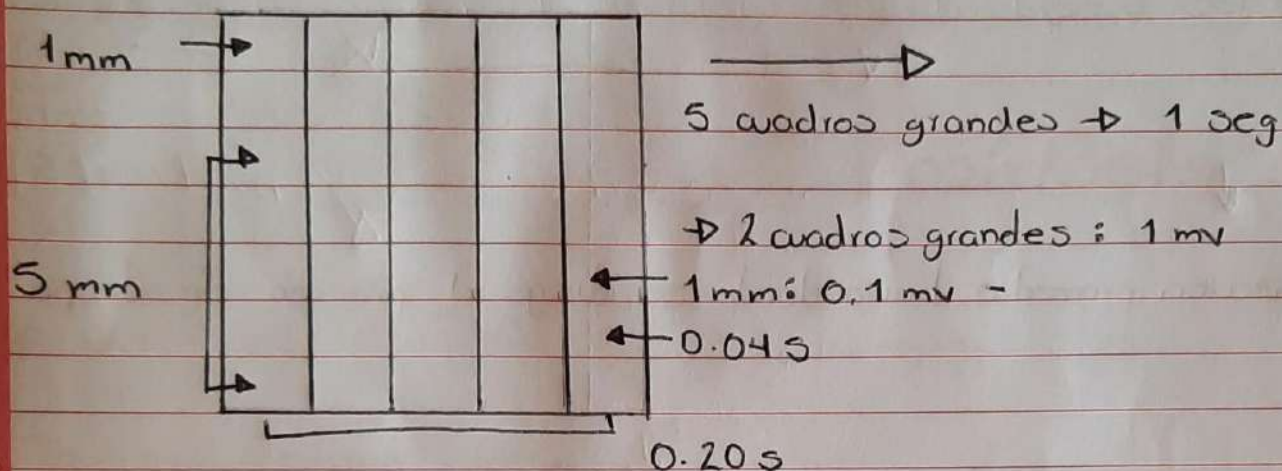 1mm
5 cuadros grandes → 1 seg
→ 2 cuadros grandes : 1 mv
5 mm
1mm: 0,1 mv -
0.04 s
0.20 s